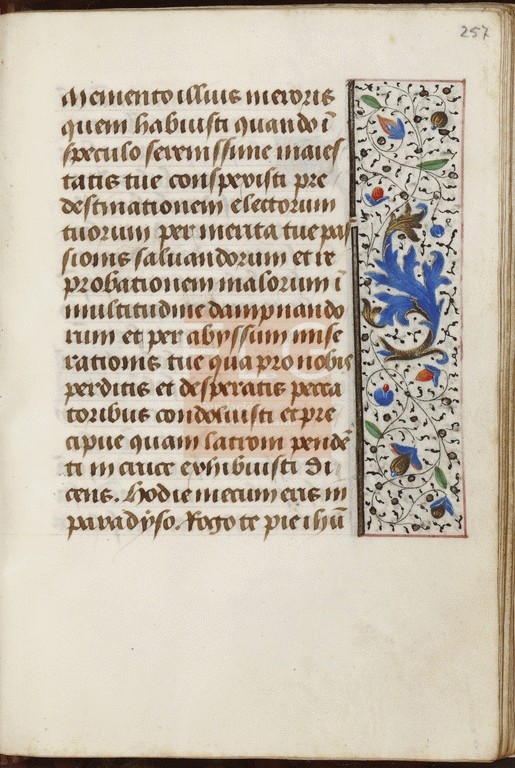 257
Memento illius meroris
quem habuisti quando ī
speculo serenissime maies
tatis tue conspexisti pre
destinationem electorum
tuorum per merita tue pas
sionis saluandorum et re
probationem malorum ī
multitudine dampnando
rum et per abyssum mise
rationis tue qua pro nobis
perditis et desperatis pecca
toribus condoluisti et pre
cipue quam latroni pendē
ti in cruce exhibuisti Di
cens. hodie mecum eris in
paradyso. Rogo te pie ihū